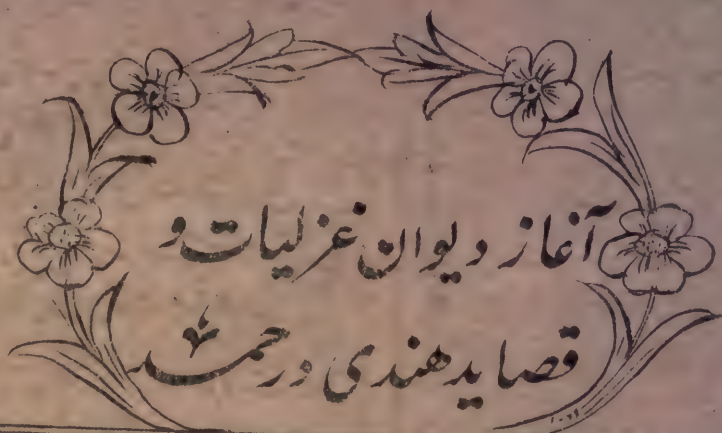 آغاز دیوان غزلیات و
قصاید هندی در حمد